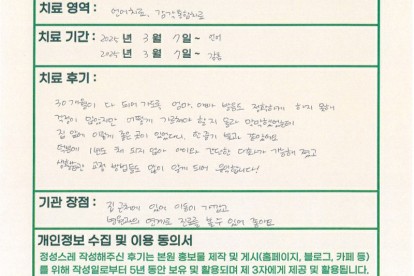 치료 영역 : 언어치료, 감각통합치료
치료 기간 : 2025 년 3 월 7 일 ~ 언어
2025 년 3 월 7 일 ~ 감통
치료 후기 :
30개월이 다 되어 가도록 엄마, 아빠 발음도 정확하게 하지 못해
걱정이 많았지만 어떻게 가르쳐야 할지 몰라 막막했었는데
집 앞에 이렇게 좋은 곳이 있었다니, 한줄기 빛과 같았어요
덕분에 1년도 채 되지 않아 아이와 간단한 대화가 가능해 졌고
생활습관 교정 방법들도 많이 알게 되어 유익합니다!
기관 장점 :
집 근처에 있어 이동이 가깝고
병원과의 연계로 진료를 볼 수 있어 좋아요
개인정보 수집 및 이용 동의서
정성스레 작성해주신 후기는 본원 홍보물 제작 및 게시(홈페이지, 블로그, 카페 등)
를 위해 작성일로부터 5년 동안 보유 및 활용되며 제 3자에게 제공 및 활용됩니다.